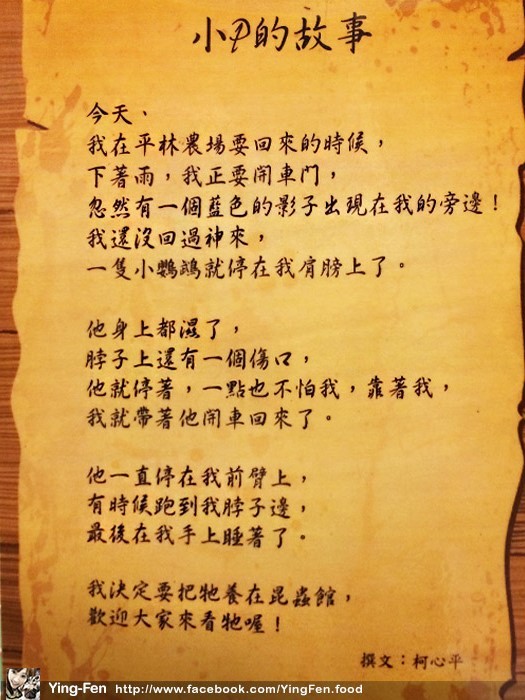 小P的故事
今天、
我在平林農場要回來的時候，
下著雨，我正要開車門，
忽然有一個藍色的影子出現在我的旁邊！
我還沒回過神來，
一隻小鸚鵡就停在我肩膀上了。
他身上都濕了，
脖子上還有一個傷口，
他就停著，一點也不怕我，靠著我，
我就帶著他開車回來了。
他一直停在我前臂上，
有時候跑到我脖子邊，
最後在我手上睡著了。
我決定要把牠養在昆蟲館，
歡迎大家來看牠喔！
撰文：柯心平
Ying-Fen http://www.facebook.com/YingFen.food